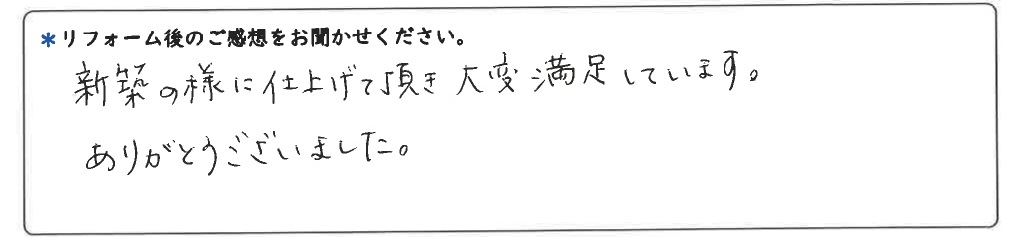 *リフォーム後のご感想をお聞かせください。
新築の様に仕上げて頂き大変満足しています。
ありがとうございました。